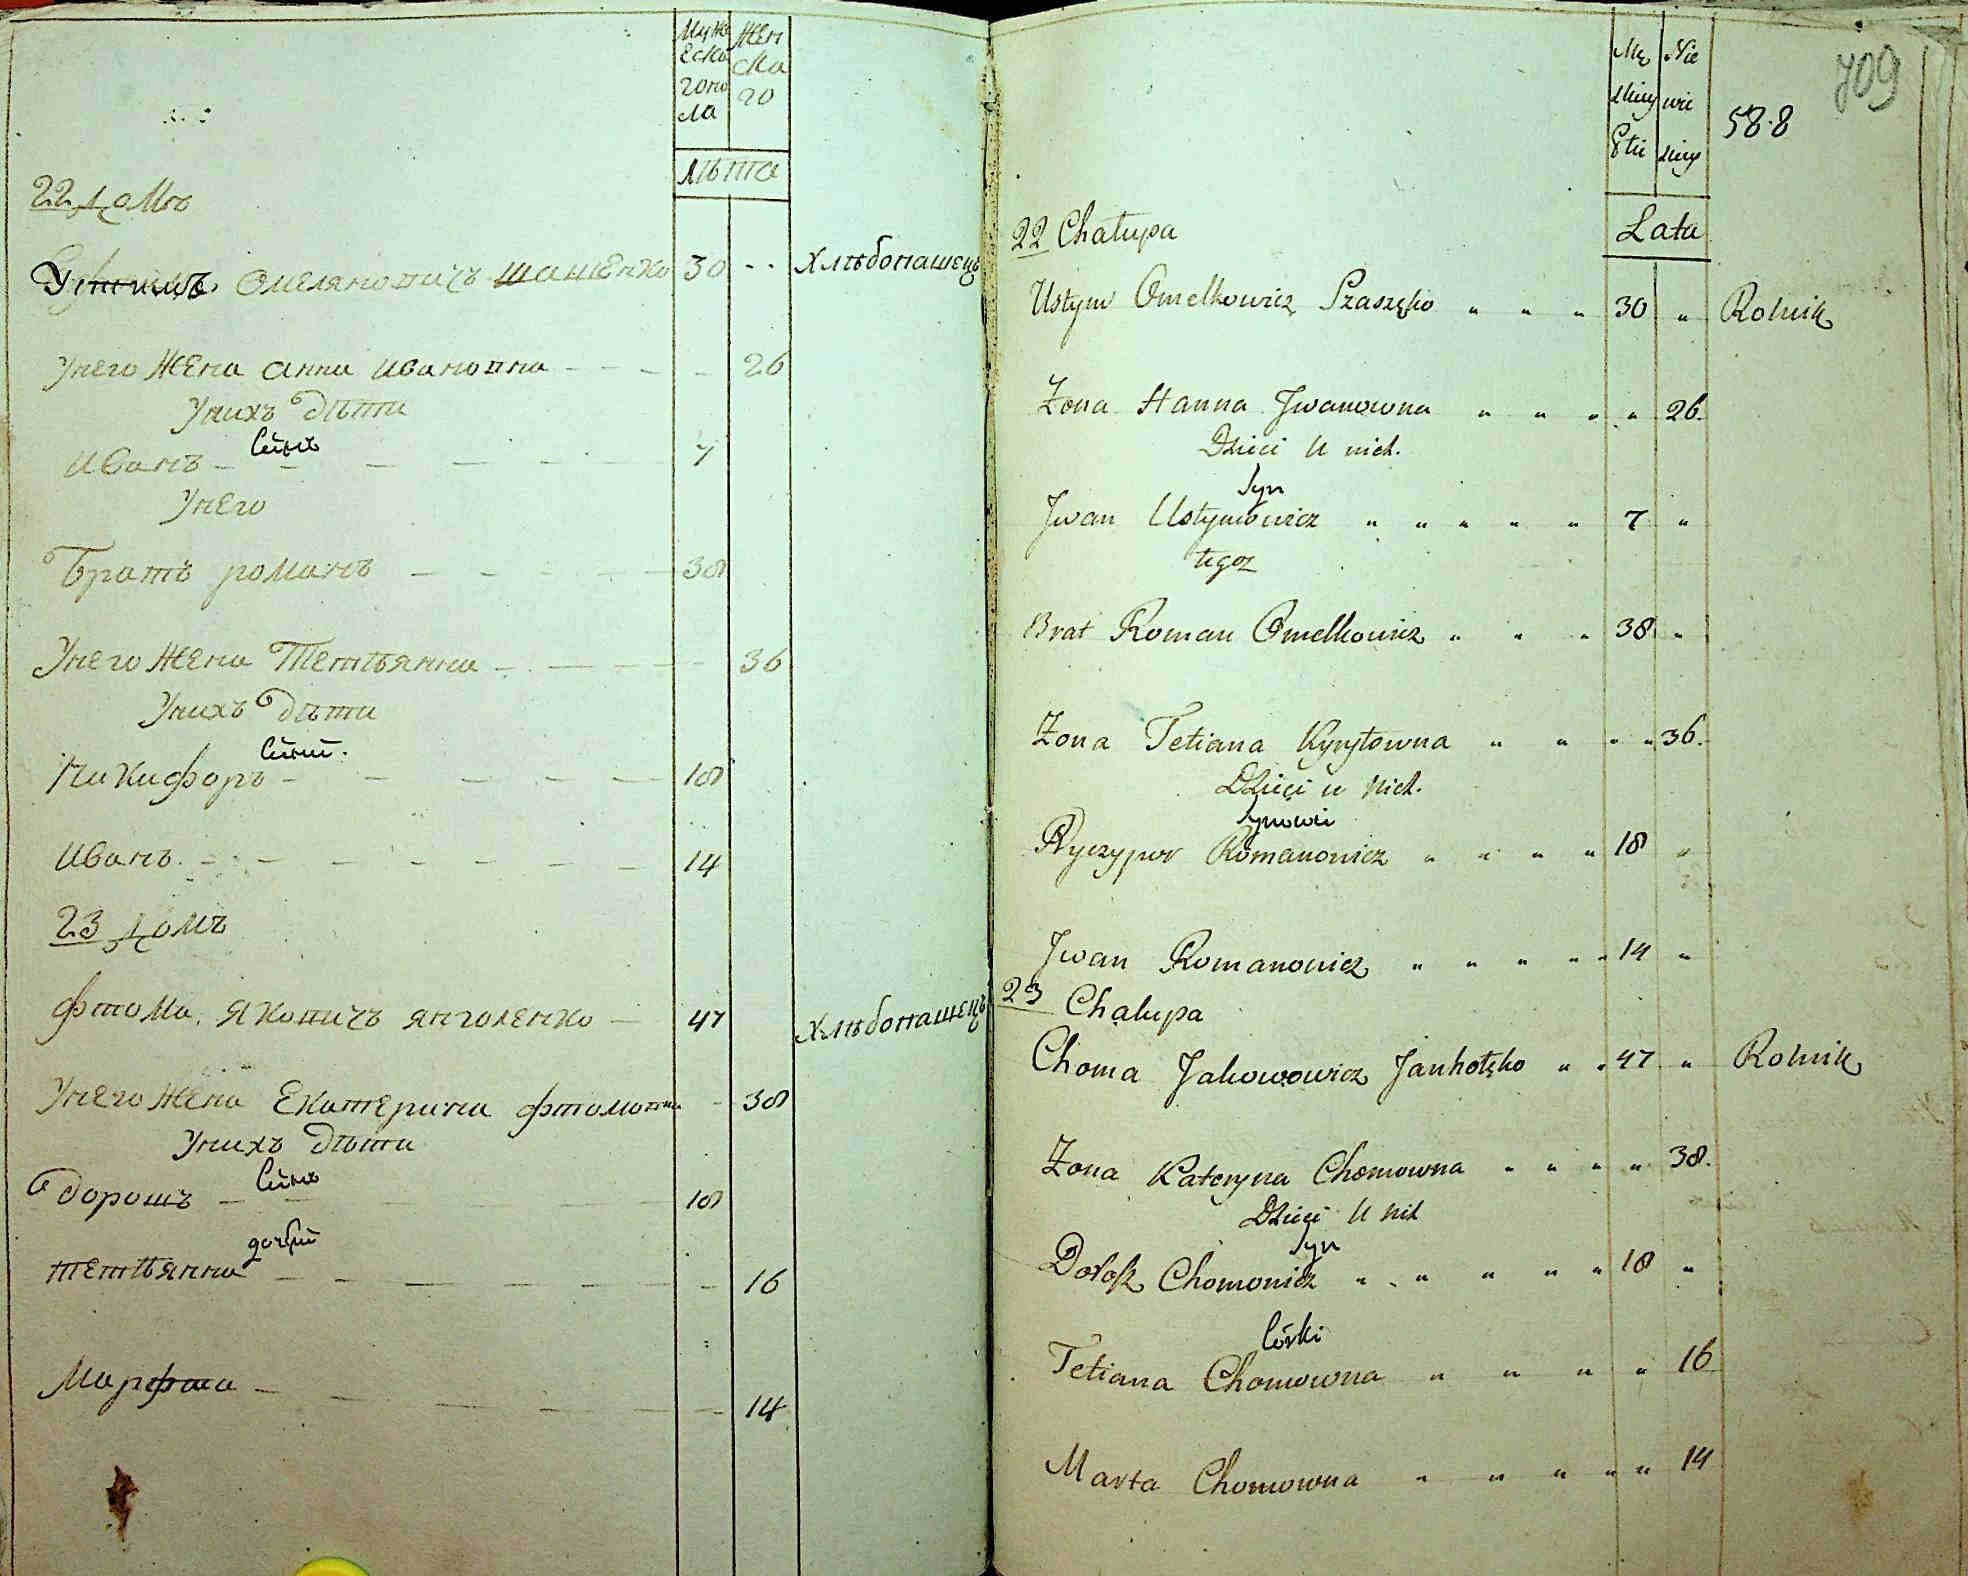 Муж Жен
еска ска
гопо го
ла
лѣта
22 домъ
Устимъ Омеляновичъ Шашенко 30 - - хлѣбопашецъ
У него жена Анна Ивановна - - - - 26
У нихъ дѣти
Сынъ
Иванъ - - - - - - 7
У него
Братъ Романъ - - - - - 38
У него жена Тетьянна - - - - - 36
У нихъ дѣти
Сыни.
Никифоръ - - - - - 18
Иванъ - - - - - - - 14
23 домъ
Фтома Яковичъ Янголенко - 47 хлѣбопашецъ
У него жена Екатерина Фтомовна - 38
У нихъ дѣти
Сынъ
Дорошъ - - - - - 18
дочери
Тетьянна - - - - - - - 16
Марфта - - - - - - 14
709
Mę Nie
skiey wie
Płci skiey
58.8
Lata
22 Chałupa
Ustym Omelkowicz Szaszęko " " " 30 " Rolnik
Żona Hanna Jwanowna " " " " 26.
Dzieci U nich.
Syn
Jwan Ustymowicz " " " " " 7 "
tegoz
Brat Roman Omelkowicz " " " 38 "
Żona Tetiana Kyryłowna " " " " 36.
Dzieci u nich.
Synowie
Nyczypor Romanowicz " " " " 18 "
Jwan Romanowicz " " " " " 14 "
23 Chałupa
Choma Jakowowicz Janhołęko " " 47 " Rolnik
Żona Kateryna Chomowna " " " " 38.
Dzieci U nich
Syn
Dorosz Chomowicz " " " " " 18 "
Córki
Tetiana Chomowna " " " " 16
Marta Chomowna " " " " " 14